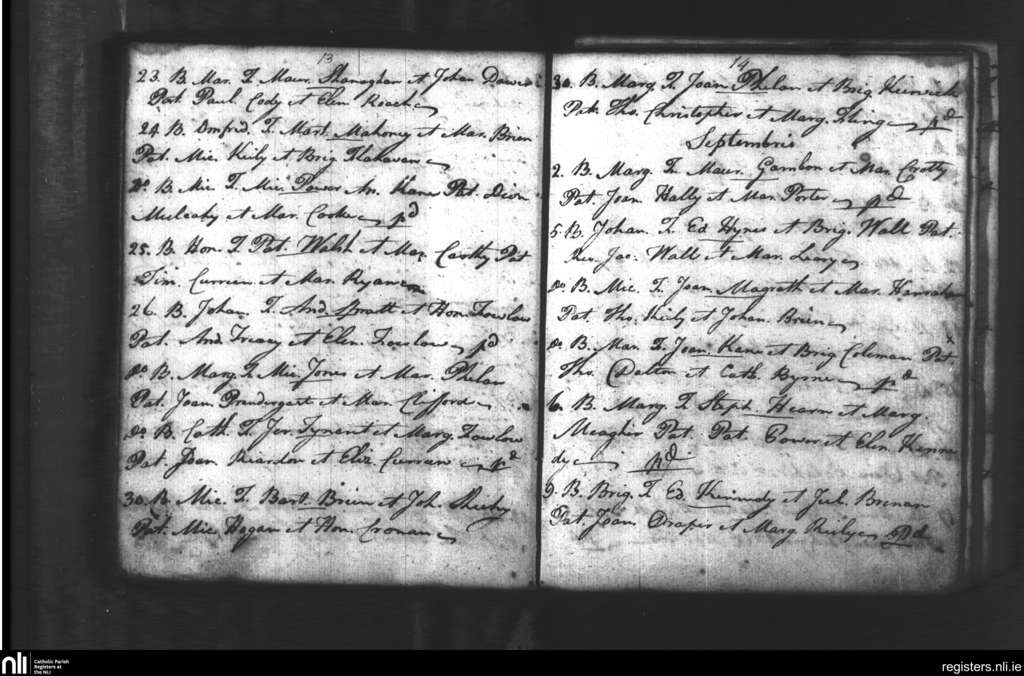 13
23. B. Mar. F. Maur. Shanaghan et Johan Dower
Pat. Paul. Cody et Elen Roach
24 B. F. Mart. Mahoney et Mar. Brien
Pat. Mic. Kiely et Brig. Flahavan
Do B. Mic F. Mic. Power An. Kane Pat. Dion
Mulcahy et Mar. Cooke pd
25. B. Hon. F. Pat. Walsh et Mar. Carthy Pat
Tim. Curreen et Mar. Ryan
26. B. Johan. F. And. Spratt et Hon. Fowlow
Pat. And. Treacy et Elen. Fowlow pd
do B. Marg. F. Mic. Jones et Mar. Phelan
Pat. Joan Prendergast et Mar. Clifford
do B. Cath. F. Jer. et Marg. Fowlow
Pat. Joan Reardon et Eliz. Curreen pd
30. B. Mic. F. Bart. Brien et Joh. Sheehy
Pat. Mic. Hogan et Hon. Cronan
14
30. B. Marg. F. Joan Phelan et Brig. Keirwick
Pat. Tho. Christopher et Marg. pd
Septembris
2. B. Marg. F. Maur. Gambon et Mar. Crotty
Pat. Joan Hally et Mar. Porter pd
5. B. Johan. F. Ed Hynes et Brig. Wall Pat.
Rev. Jac. Wall et Mar. Leary
do B. Mic. F. Joan. Magrath et Mar. Hanrahan
Pat. Tho. Kiely et Johan. Brien
do B. Mar. F. Joan Kane et Brig Coleman Pat
Tho. Dalton et Cath. Byrne pd
6. B. Marg. F. Steph. Hearn et Marg.
Meagher Pat. Pat. Power et Elen. Kenne
dy pd
9. B. Brig. F. Ed. Kennedy et Jul. Brenan
Pat. Joan. Draper et Marg. Kiely pd
nli
Catholic Parish
Registers at
the NLI
registers.nli.ie